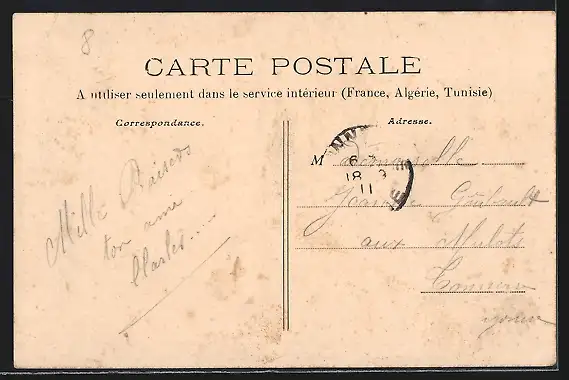 8
CARTE POSTALE
A utiliser seulement dans le service intérieur (France, Algérie, Tunisie)
Correspondance.
Mille Baisers
ton ami
Charles....
Adresse.
Mademoiselle
Goubault
aux Mulots
Yonne
18 9
11